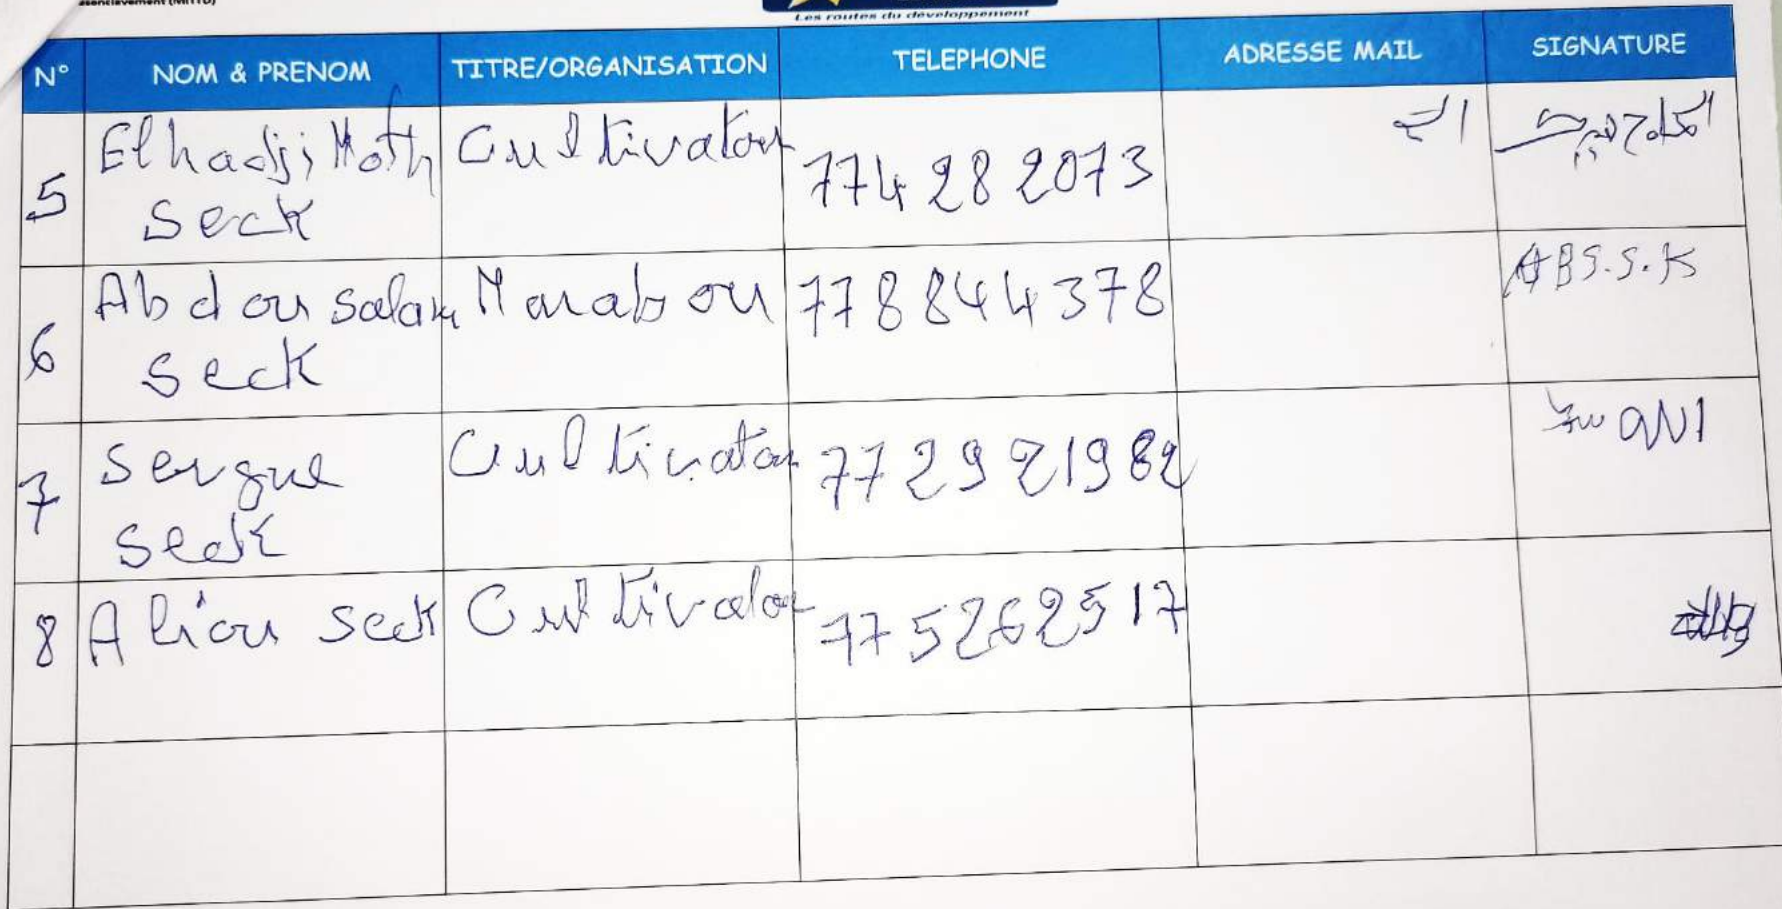 Les routes du développement
N° NOM & PRENOM TITRE/ORGANISATION TELEPHONE ADRESSE MAIL SIGNATURE
5 Elhadji Moth Cultivator 774 28 2073
Seck
6 Abdou salam Marabou 778844378 ABS.S.K
Seck
7 Sergue Cultivator 772921982
Seck
8 Aliou Seck Cultivator 775262517